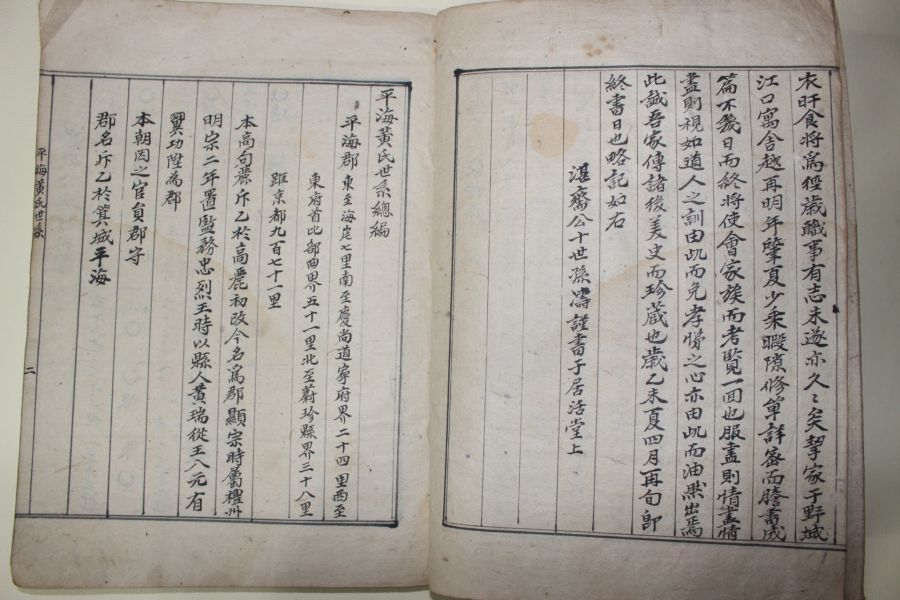 衣旰食將爲役歲職事有志未遂亦久々矣挈家于野城
江口寓舍越再明年肇夏少乘暇隙修單詳密而謄書成
篇不幾日而終將使會家族而考覽一囬也服盡則情盡情
盡則視如道人之訓由此而免孝悌之心亦由此而油然出焉
此誠吾家傳諸後美史而珍藏也歲乙未夏四月再旬卽
終書日也略記如右
湛齋公十世孫濤謹書于居活堂上
平海黃氏世系總編
平海郡 東至海岸七里南至慶尙道寧府界二十四里西至
東府首比部曲界五十一里北至蔚珍縣界三十八里
距京都九百七十一里
本高句麗斤乙於高麗初改今名爲郡顯宗時屬禮州
明宗二年置監務忠烈王時以縣人黃瑞從王入元有
翼功陞爲郡
本朝因之官員郡守
郡名斤乙於箕城平海
平海黃氏世系
二